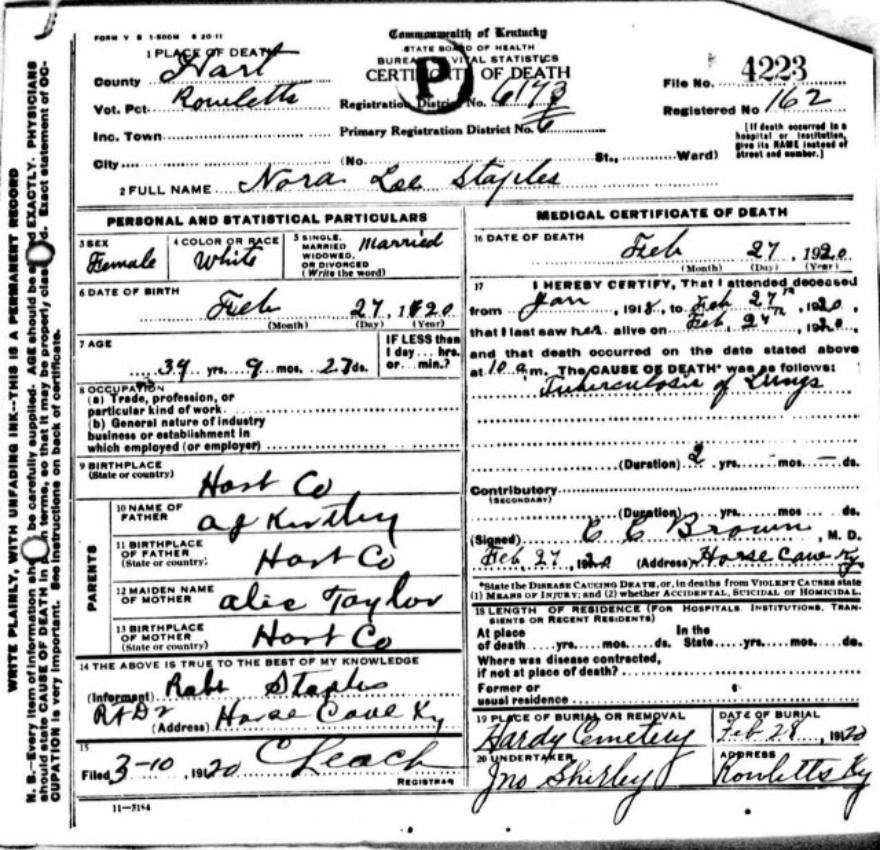 FORM V S 1-500M 6 20-11
Commonwealth of Kentucky
STATE BOARD OF HEALTH
BUREAU VITAL STATISTICS
CERTIFICATE OF DEATH
P
1 PLACE OF DEATH
County Hart
Vot. Pct. Rowletts
Inc. Town
City (No. St., Ward)
Registration District No. 6173
Primary Registration District No. 6
File No. 4223
Registered No 162
[If death occurred in a hospital or institution, give its NAME instead of street and number.]
2 FULL NAME Nora Lee Staples
PERSONAL AND STATISTICAL PARTICULARS
3 SEX Female
4 COLOR OR RACE White
5 SINGLE, MARRIED WIDOWED, OR DIVORCED (Write the word) Married
6 DATE OF BIRTH
Feb 27, 1920
(Month) (Day) (Year)
7 AGE
39 yrs. 9 mos. 27 ds.
IF LESS than 1 day... hrs. or... min.?
8 OCCUPATION
(a) Trade, profession, or
particular kind of work
(b) General nature of industry
business or establishment in
which employed (or employer)
9 BIRTHPLACE
(State or country)
Hart Co
PARENTS
10 NAME OF FATHER
A J Kirtley
11 BIRTHPLACE OF FATHER (State or country)
Hart Co
12 MAIDEN NAME OF MOTHER
Alic Taylor
13 BIRTHPLACE OF MOTHER (State or country)
Hart Co
14 THE ABOVE IS TRUE TO THE BEST OF MY KNOWLEDGE
(Informant) Robt Staples
(Address) Horse Cave Ky
15
Filed 3-10, 1920 C Leach
REGISTRAR
11-3184
MEDICAL CERTIFICATE OF DEATH
16 DATE OF DEATH
Feb 27, 1920
(Month) (Day) (Year)
17 I HEREBY CERTIFY, That I attended deceased
from Jan, 1918, to Feb 27th, 1920,
that I last saw her alive on Feb, 27th, 1920,
and that death occurred on the date stated above
at 10 a.m. The CAUSE OF DEATH* was as follows:
Tuberculosis of Lungs
(Duration) 2 yrs. - mos. - ds.
Contributory
(SECONDARY)
(Duration) yrs. mos. ds.
(Signed) C C Brown, M. D.
Feb 27, 1920 (Address) Horse Cave Ky
*State the DISEASE CAUSING DEATH, or, in deaths from VIOLENT CAUSES state
(1) MEANS OF INJURY; and (2) whether ACCIDENTAL, SUICIDAL or HOMICIDAL.
18 LENGTH OF RESIDENCE (FOR HOSPITALS, INSTITUTIONS, TRANSIENTS OR RECENT RESIDENTS)
At place of death yrs. mos. ds. In the State yrs. mos. ds.
Where was disease contracted,
if not at place of death?
Former or
usual residence
19 PLACE OF BURIAL OR REMOVAL
Hardy Cemetery
DATE OF BURIAL
Feb 28, 1920
20 UNDERTAKER
Jno Shirley
ADDRESS
Rowletts Ky
WRITE PLAINLY, WITH UNFADING INK--THIS IS A PERMANENT RECORD
N. B.--Every item of information should be carefully supplied. AGE should be stated EXACTLY. PHYSICIANS
should state CAUSE OF DEATH in plain terms, so that it may be properly classified. Exact statement of OC-
CUPATION is very important. See instructions on back of certificate.